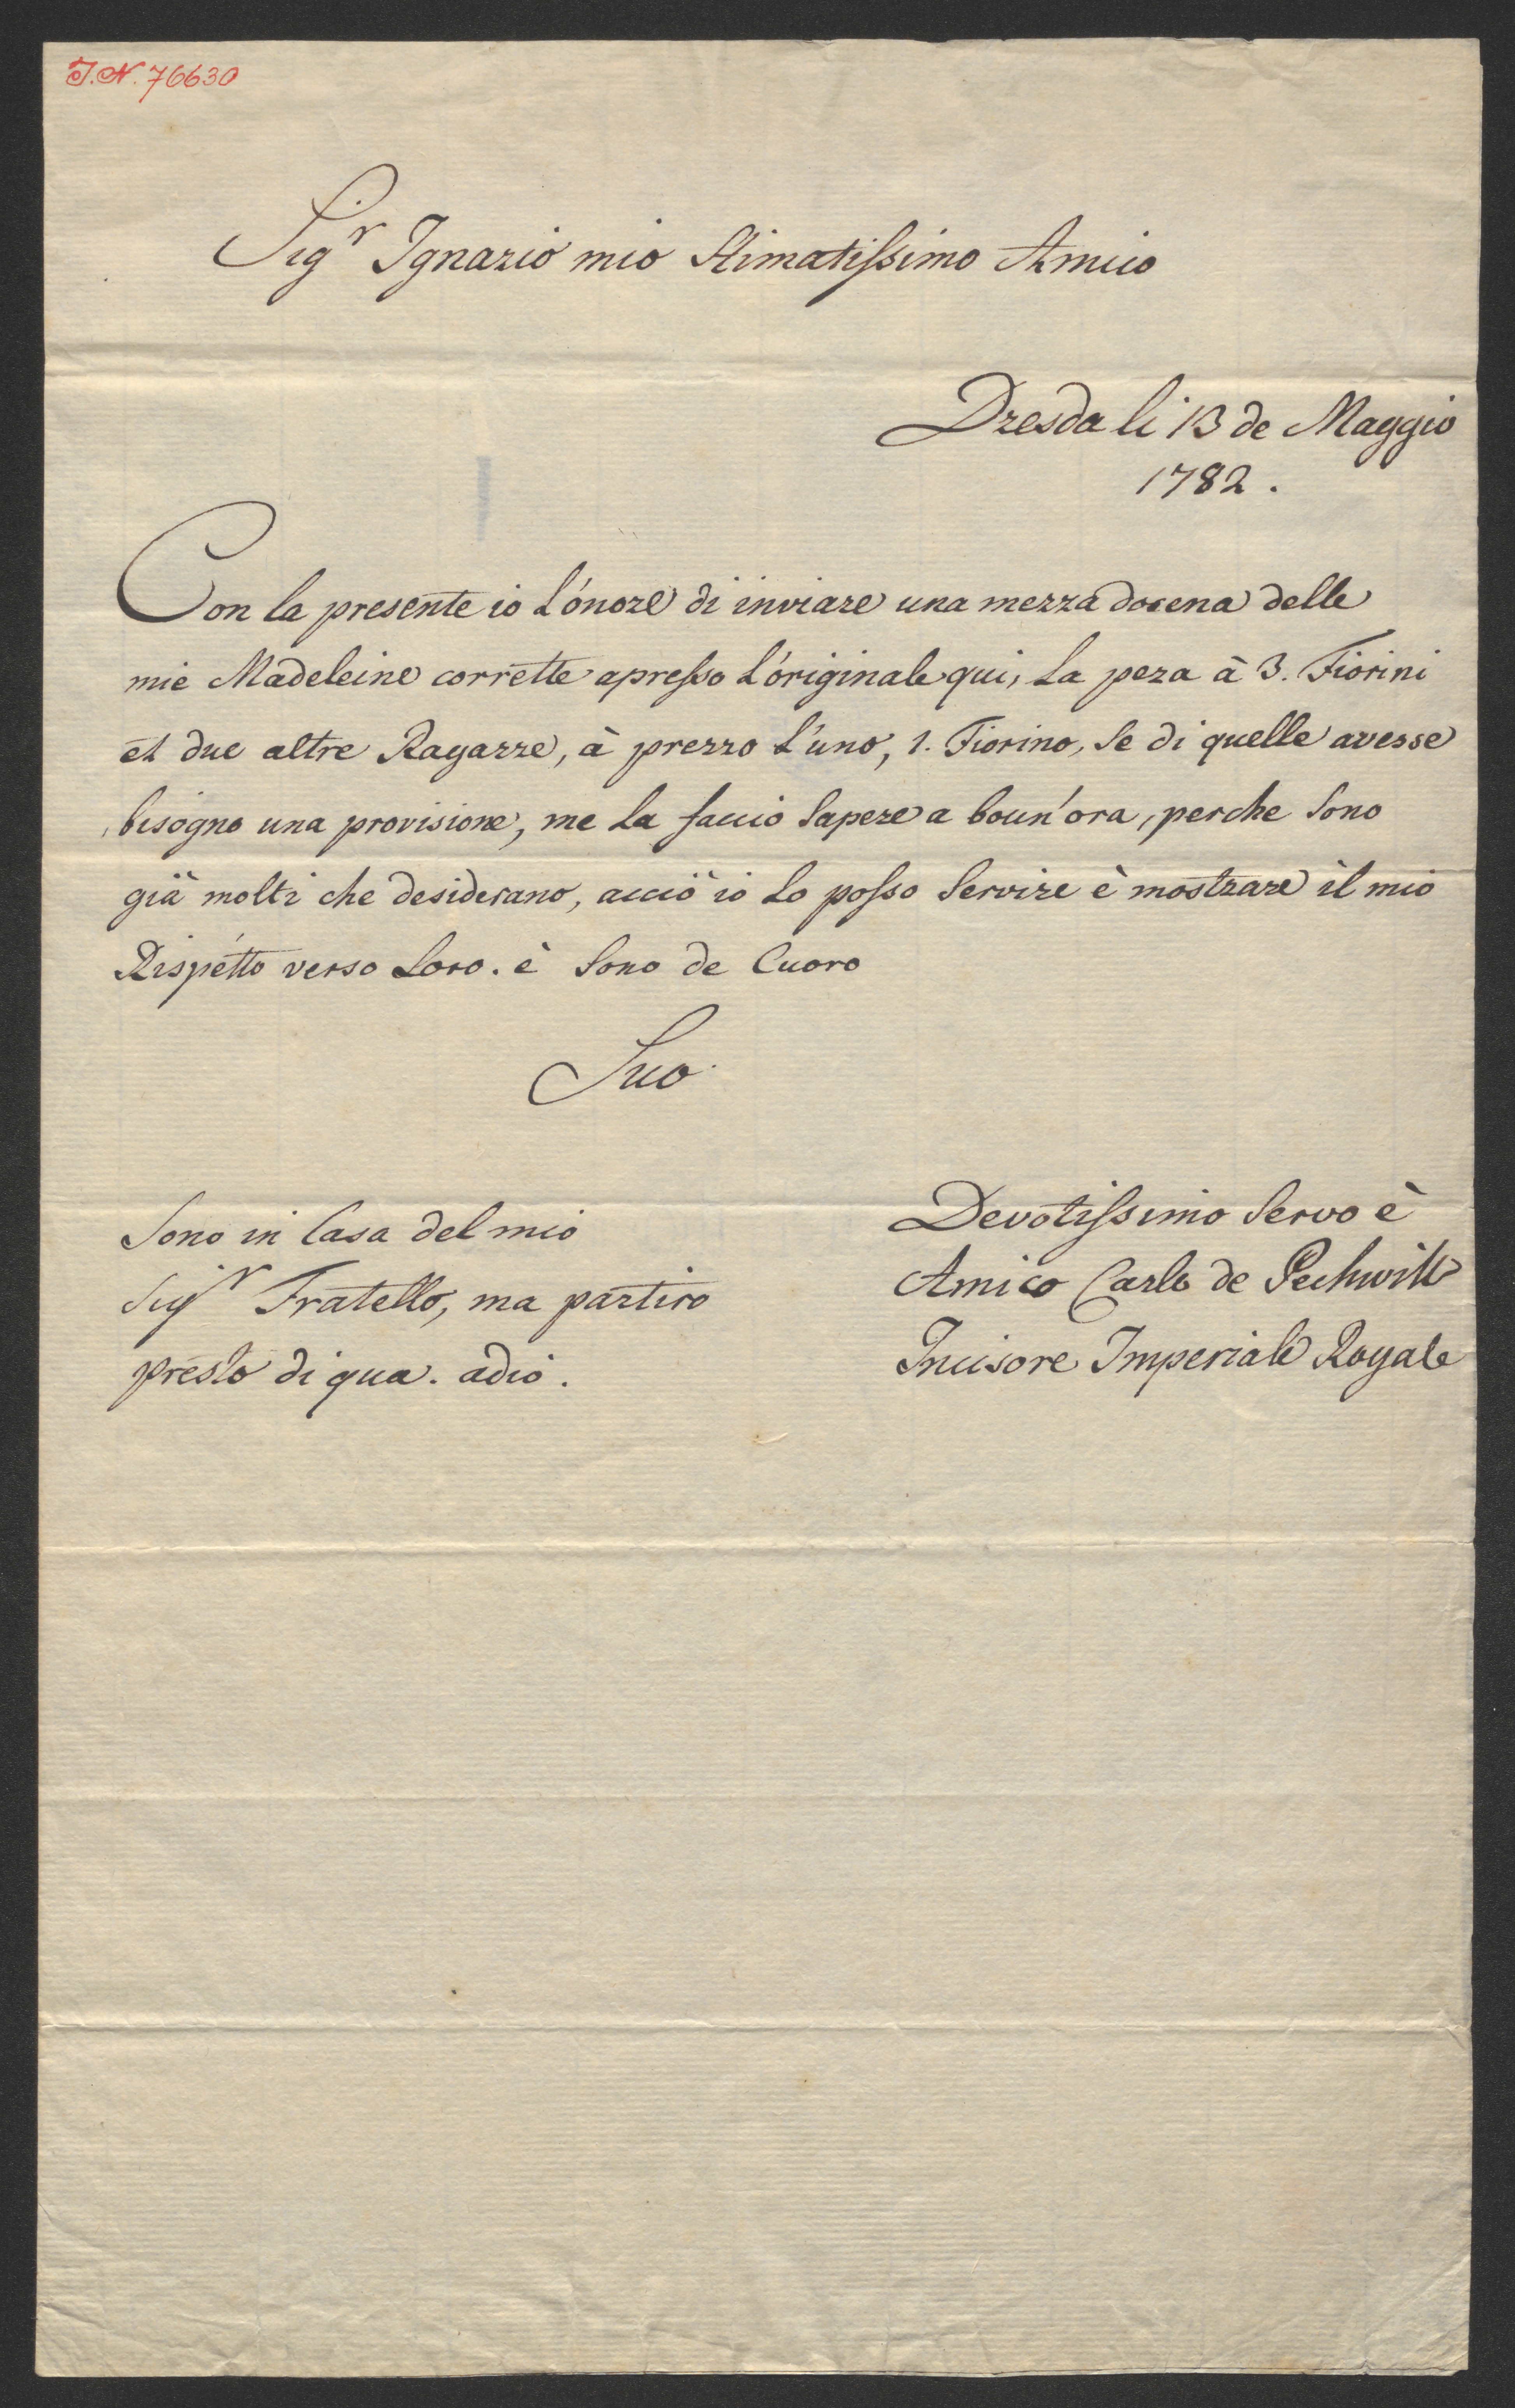 J.N. 76630
Sigr Ignazio mio Stimatissimo Amico
Dresda li 13 de Maggio
1782.
Con la presente io L'onore di inviare una mezza docena delle
mie Madeleine corrette apresso L'originale qui, La peza à 3. Fiorini
et due altre Ragazze, à prezzo L'uno, 1. Fiorino, Se di quelle avesse
bisogno una provisione, me La faccio Sapere a boun'ora, perche Sono
già molti che desiderano, acciò io Lo posso Servire è mostrare il mio
Rispetto verso Loro. è Sono de Cuoro
Suo
Devotissimo Servo è
Amico Carlo de Pechwill
Incisore Imperiale Royale
Sono in Casa del mio
Sigr Fratello, ma partiro
presto di qua. adio.